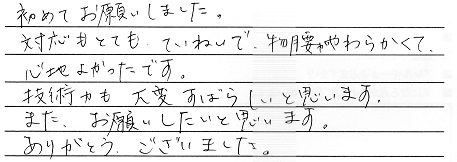 初めてお願いしました。
対応もとても、ていねいで、物腰がやわらかくて、
心地よかったです。
技術力も大変すばらしいと思います。
また、お願いしたいと思います。
ありがとう、ございました。